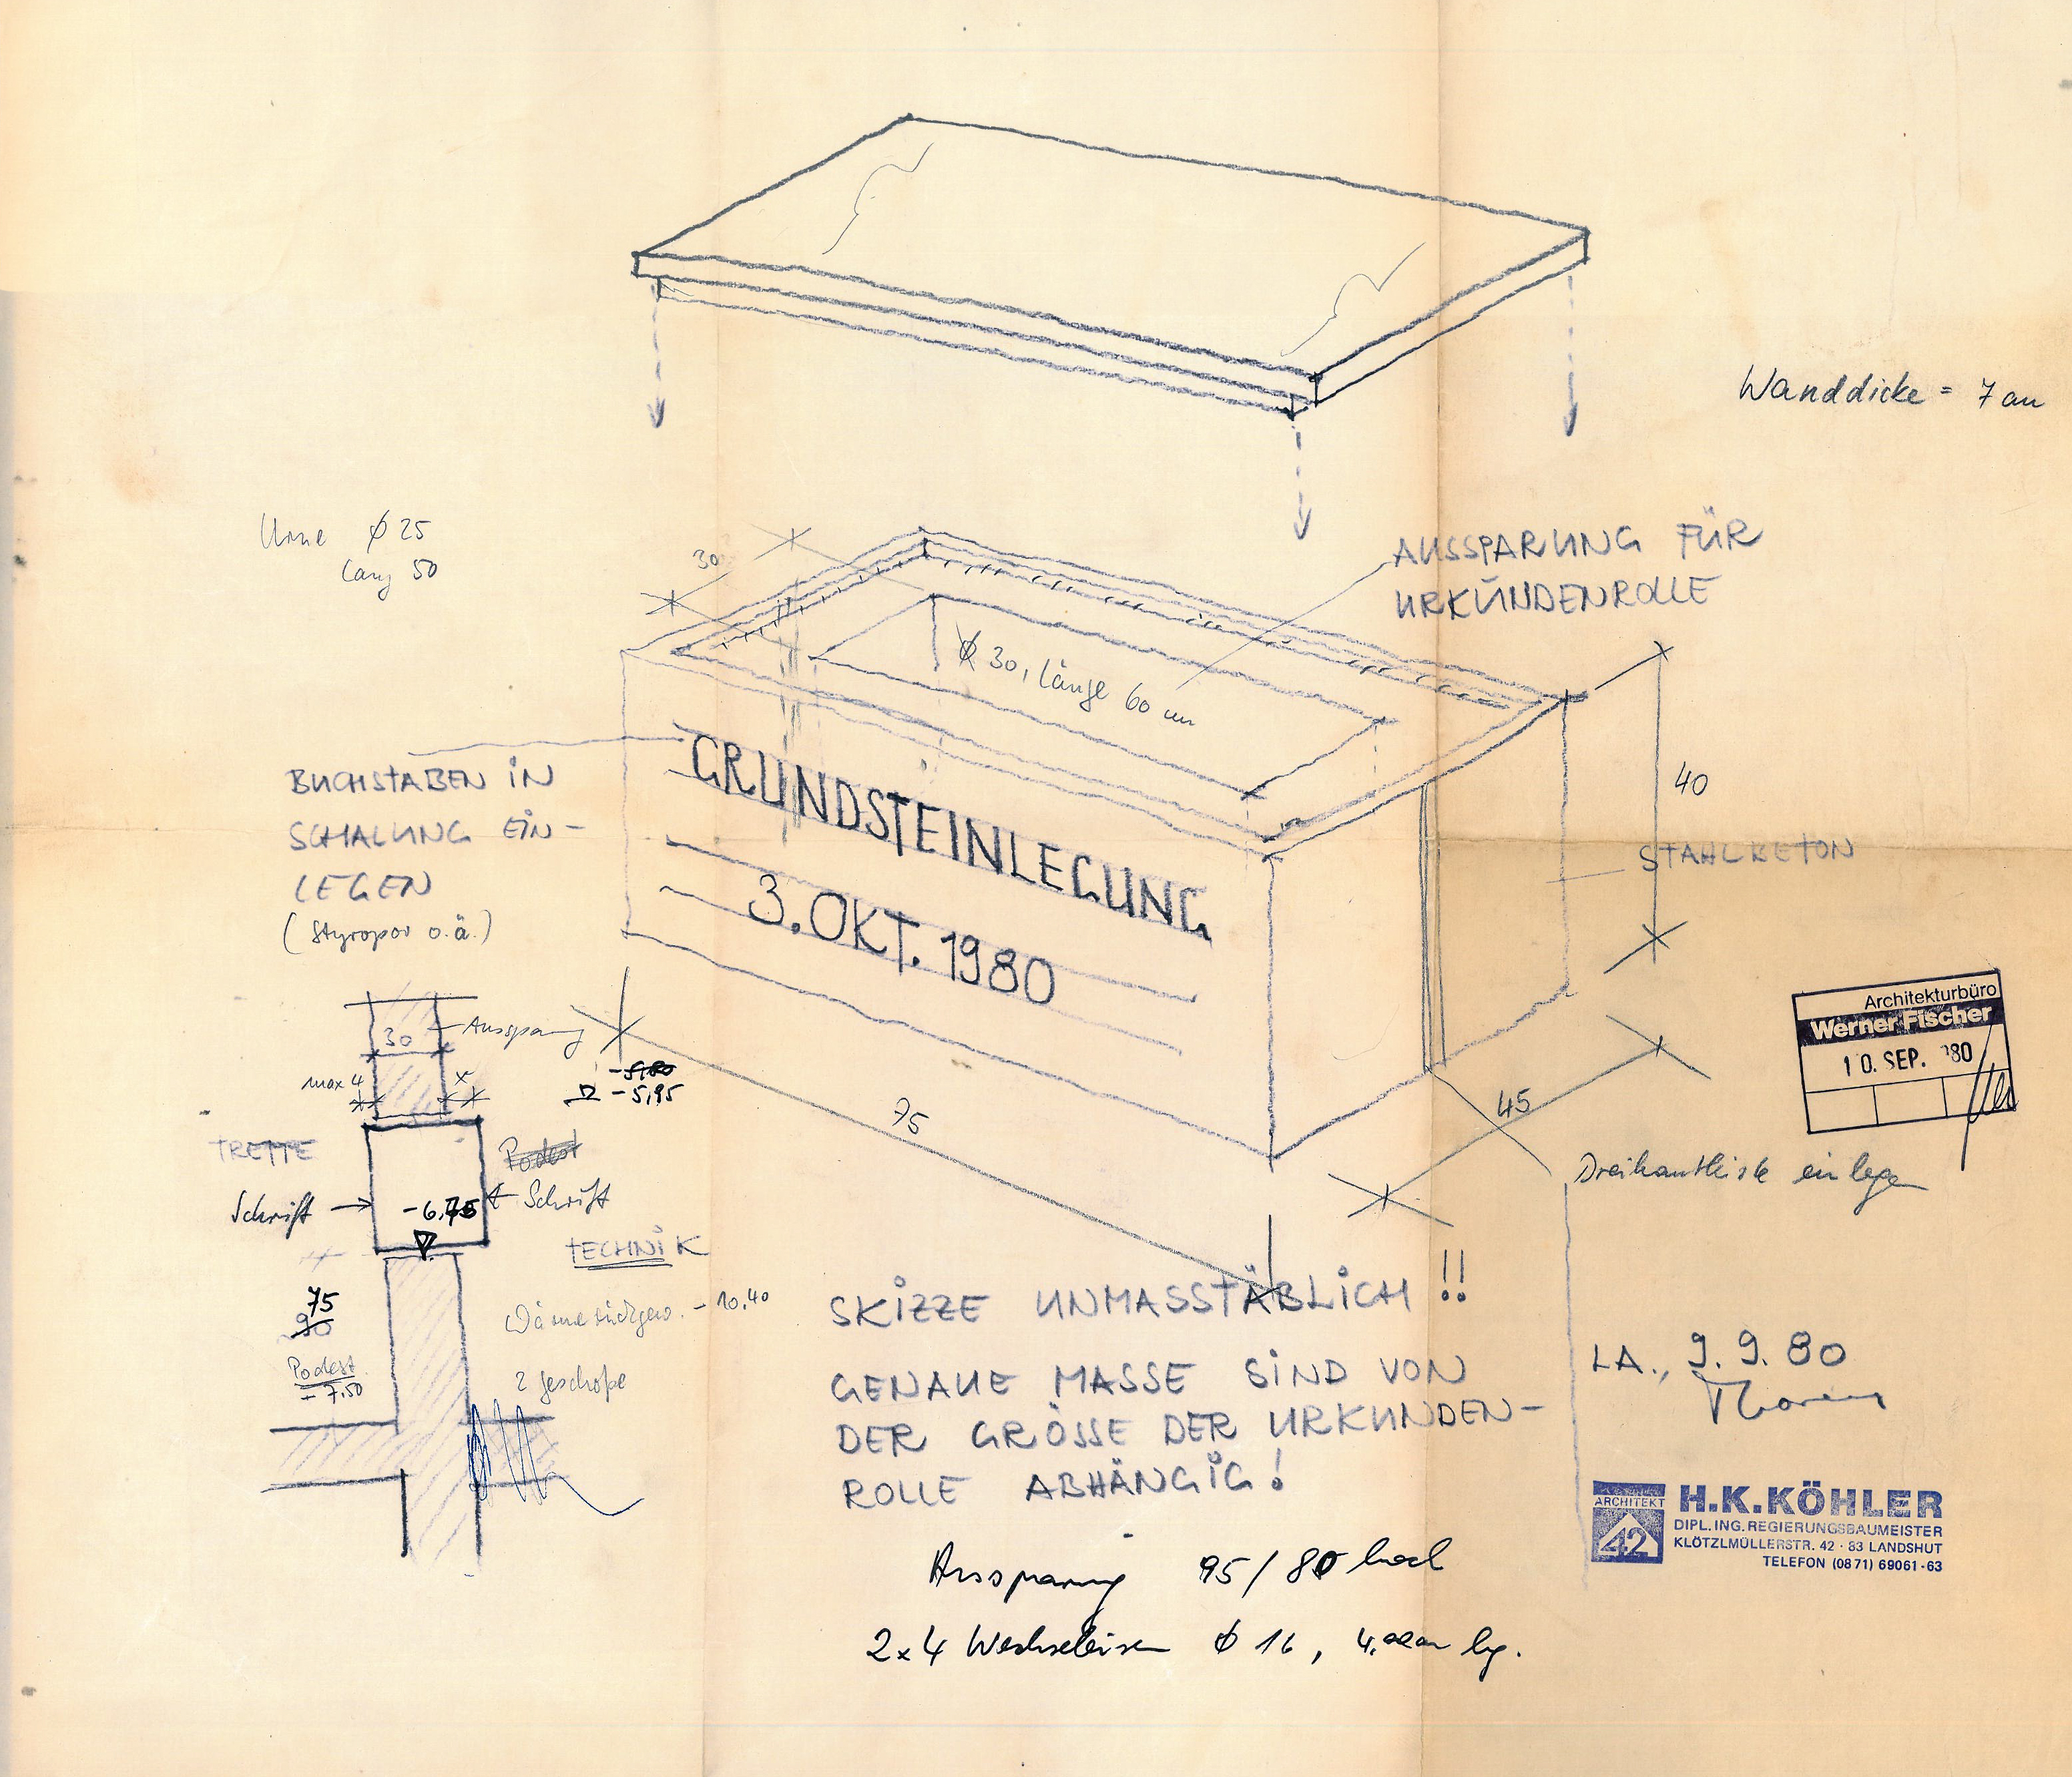 Wanddicke = 7 cm
Urne ∅ 25
lang 50
30
AUSSPARUNG FÜR
URKUNDENROLLE
∅ 30, Länge 60 cm
BUCHSTABEN IN
SCHALUNG EIN-
LEGEN
(Styropor o.ä.)
GRUNDSTEINLEGUNG
3. OKT. 1980
40
STAHLBETON
75
45
Dreikantleiste einlegen
30
Aussparung
max 4
x
-5,95
TREPPE
Podest
Schrift
-6,75
Schrift
TECHNIK
75
90
Wärmerückgew. - 10,40
Podest
- 7,50
2 Geschoße
SKIZZE UNMASSTÄBLICH !!
GENAUE MASSE SIND VON
DER GRÖSSE DER URKUNDEN-
ROLLE ABHÄNGIG!
Aussparung 95/80 hoch
2x4 Wechseleisen ∅ 16, lg.
Architekturbüro
Werner Fischer
10. SEP. 80
LA., 9. 9. 80
ARCHITEKT
42
H.K.KÖHLER
DIPL.ING.REGIERUNGSBAUMEISTER
KLÖTZLMÜLLERSTR. 42 · 83 LANDSHUT
TELEFON (0871) 69061-63